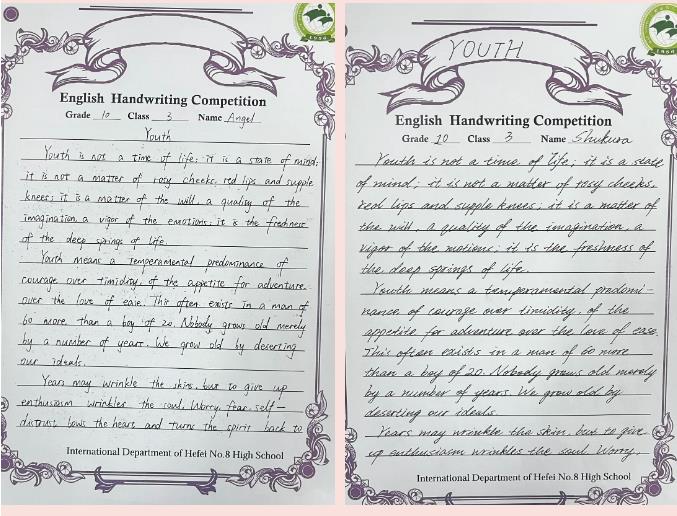 English Handwriting Competition
Grade 10 Class 3 Name Angel
Youth
Youth is not a time of life; it is a state of mind;
it is not a matter of rosy cheeks, red lips and supple
knees; it is a matter of the will, a quality of the
imagination, a vigor of the emotions; it is the freshness
of the deep springs of life.
Youth means a temperamental predominance of
courage over timidity, of the appetite for adventure
over the love of ease. This often exists in a man of
60 more than a boy of 20. Nobody grows old merely
by a number of years. We grow old by deserting
our ideals.
Years may wrinkle the skin, but to give up
enthusiasm wrinkles the soul. Worry, fear, self-
distrust bows the heart and turns the spirit back to
International Department of Hefei No.8 High School
YOUTH
English Handwriting Competition
Grade 10 Class 3 Name Shukura
Youth is not a time of life; it is a state
of mind; it is not a matter of rosy cheeks.
red lips and supple knees; it is a matter of
the will, a quality of the imagination, a
vigor of the motions; it is the freshness of
the deep springs of life.
Youth means a tempernmental predomi-
nance of courage over timidity, of the
appetite for adventure over the love of ease.
This often exists in a man of 60 more
than a boy of 20. Nobody grows old merely
by a number of years. We grow old by
deserting our ideals.
Years may wrinkle the skin, but to give
up enthusiasm wrinkles the soul. Worry,
International Department of Hefei No.8 High School